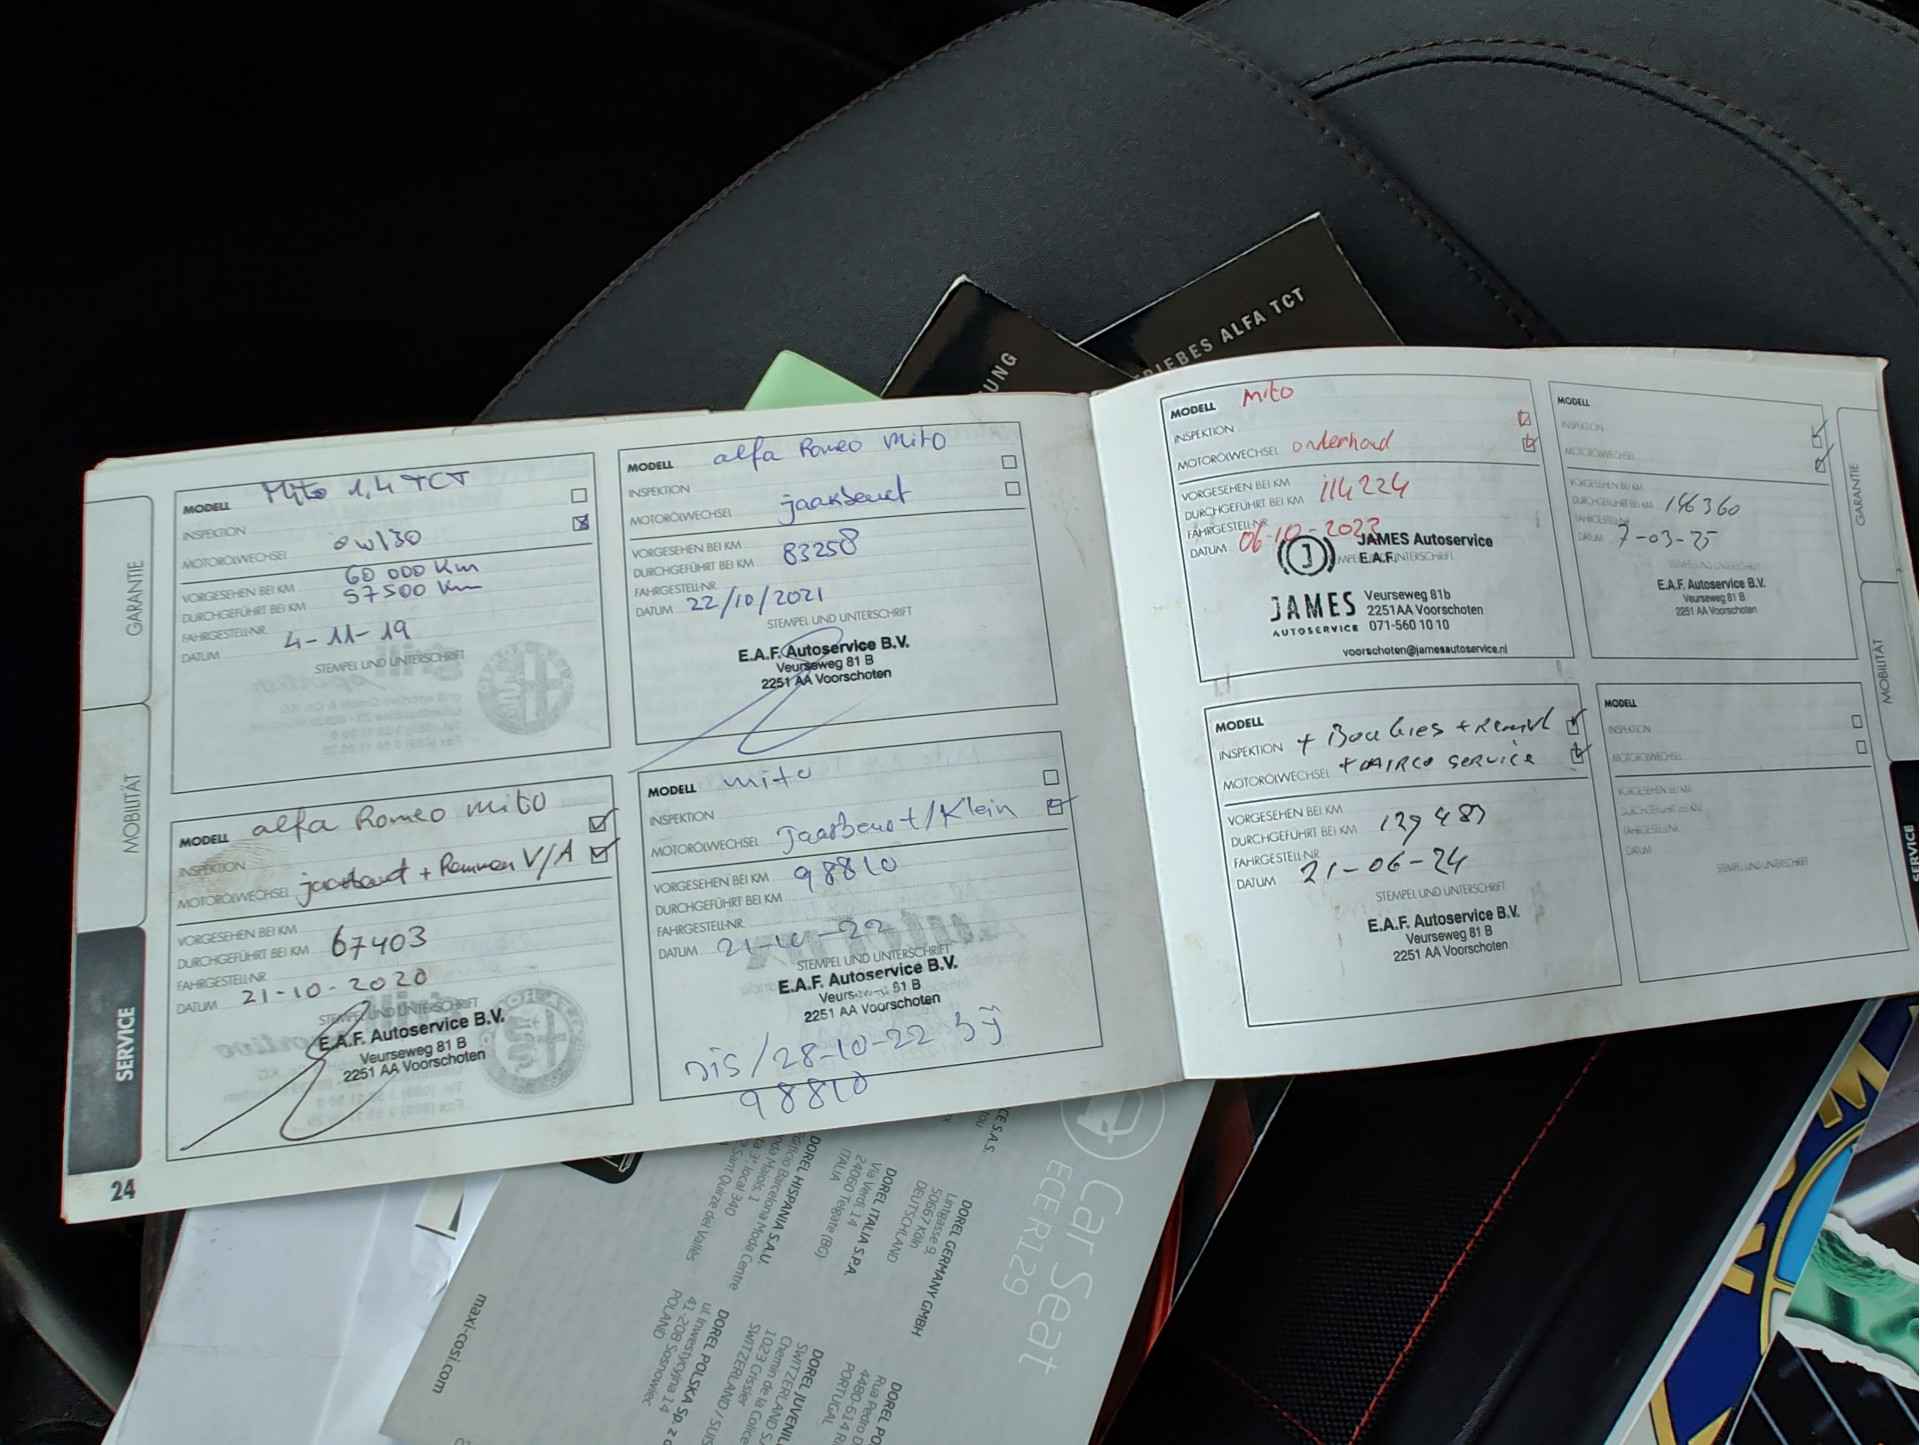 RIEBES ALFA TCT
UNG
GARANTIE
MOBILITÄT
SERVICE
24
MODELL Mito 1,4 TCT
INSPEKTION
MOTORÖLWECHSEL 0W/30
VORGESEHEN BEI KM 60 000 Km
DURCHGEFÜHRT BEI KM 57500 Km
FAHRGESTELL-NR.
DATUM 4-11-19
STEMPEL UND UNTERSCHRIFT
MODELL alfa Romeo Mito
INSPEKTION
MOTORÖLWECHSEL jaarbeurt + Remmen V/A
VORGESEHEN BEI KM
DURCHGEFÜHRT BEI KM 67403
FAHRGESTELL-NR.
DATUM 21-10-2020
STEMPEL UND UNTERSCHRIFT
E.A.F. Autoservice B.V.
Veurseweg 81 B
2251 AA Voorschoten
MODELL alfa Romeo Mito
INSPEKTION
MOTORÖLWECHSEL jaarbeurt
VORGESEHEN BEI KM
DURCHGEFÜHRT BEI KM 83258
FAHRGESTELL-NR.
DATUM 22/10/2021
STEMPEL UND UNTERSCHRIFT
E.A.F. Autoservice B.V.
Veurseweg 81 B
2251 AA Voorschoten
MODELL mito
INSPEKTION
MOTORÖLWECHSEL Jaarbeurt/Klein
VORGESEHEN BEI KM 98810
DURCHGEFÜHRT BEI KM
FAHRGESTELL-NR.
DATUM 21-10-22
STEMPEL UND UNTERSCHRIFT
E.A.F. Autoservice B.V.
Veurseweg 81 B
2251 AA Voorschoten
Dis/28-10-22 bij
98810
MODELL Mito
INSPEKTION
MOTORÖLWECHSEL onderhoud
VORGESEHEN BEI KM
DURCHGEFÜHRT BEI KM 114224
FAHRGESTELL-NR.
DATUM 06-10-2023
JAMES Autoservice
E.A.F.
JAMES
AUTOSERVICE
Veurseweg 81b
2251AA Voorschoten
071-560 10 10
voorschoten@jamesautoservice.nl
MODELL
INSPEKTION + Bougies + Remvl
MOTORÖLWECHSEL + AIRCO SERVICE
VORGESEHEN BEI KM
DURCHGEFÜHRT BEI KM
FAHRGESTELL-NR.
DATUM 21-06-24
STEMPEL UND UNTERSCHRIFT
E.A.F. Autoservice B.V.
Veurseweg 81 B
2251 AA Voorschoten
MODELL
INSPEKTION
MOTORÖLWECHSEL
VORGESEHEN BEI KM
DURCHGEFÜHRT BEI KM
FAHRGESTELL-NR.
DATUM 7-03-25
E.A.F. Autoservice B.V.
Veurseweg 81 B
2251 AA Voorschoten
MODELL
INSPEKTION
MOTORÖLWECHSEL
VORGESEHEN BEI KM
DURCHGEFÜHRT BEI KM
FAHRGESTELL-NR.
DATUM
STEMPEL UND UNTERSCHRIFT
GARANTIE
MOBILITÄT
SERVICE
Car Seat
ECE R129
DOREL GERMANY GMBH
50667 Köln
DEUTSCHLAND
DOREL ITALIA S.P.A.
Via Verdi, 14
24060 Telgate (BG)
ITALIA
DOREL HISPANIA S.A.U.
DOREL JUVENIL
SWITZERLAND
DOREL POLSKA Sp. z o
41-208 Sosnowiec
POLAND
PORTUGAL
maxi-cosi.com